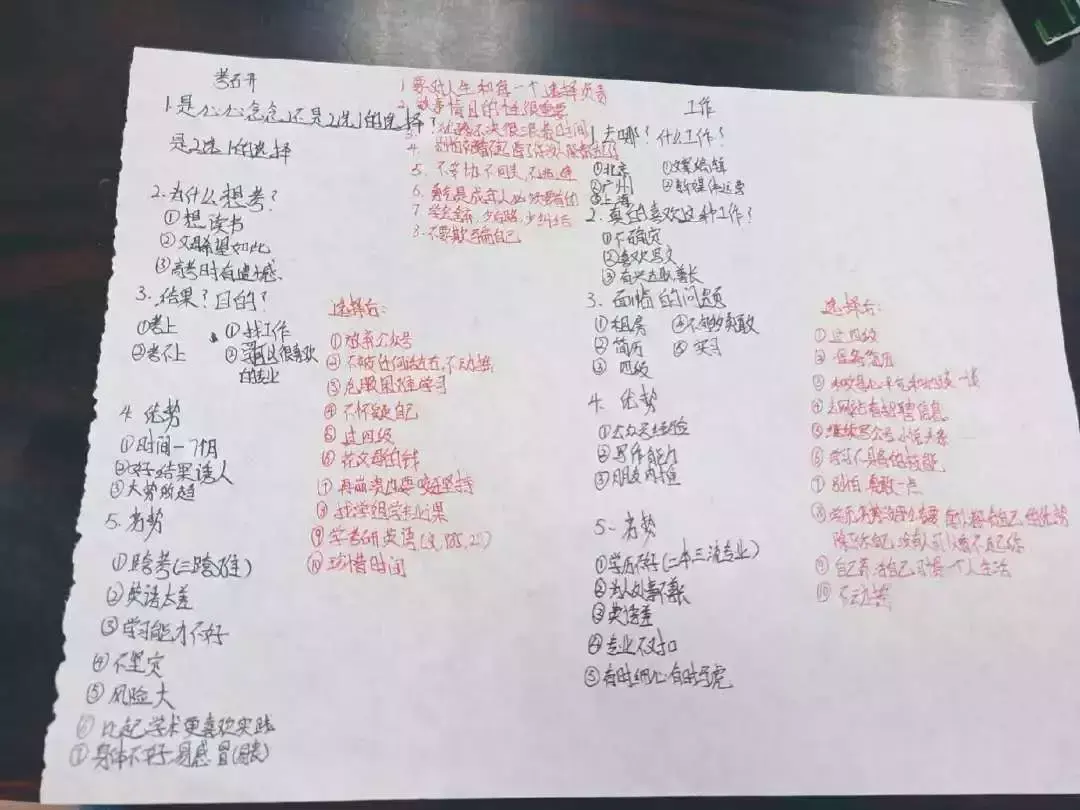 考研
1. 是心心念念还是2选1的选择?
是2选1的选择
2. 为什么想考?
①想读书
②父母希望如此
③高考时有遗憾
3. 结果?目的?
①考上
②考不上
①找工作
②喜欢的专业
4. 优势
①时间一7个月
②好结果诱人
③大势所趋
5. 劣势
①跨考(三跨难)
②英语太差
③学习能力不好
④不坚定
⑤风险大
⑥比起学术更喜欢实践
⑦身体不好易感冒
选择后:
①放弃公众号
②不被任何
③克服困难学习
④不怀疑自己
⑤过四级
⑥花父母的钱
⑦再崩溃也要咬牙坚持
⑧找学姐学专业课
⑨学考研英语
⑩珍惜时间
1. 要对人生和每一个选择负责
2. 做事情目的性很重要
3. 犹豫不决很浪费时间
4.
5. 不害怕 不回头 不
6. 勇气是成年人必须要有的
7. 少纠结
8. 不要欺骗自己
工作
1. 去哪?什么工作?
①北京
②广州
③上海
①文案编辑
②新媒体运营
2. 真的喜欢这种工作?
①不确定
②喜欢写文
③有兴趣擅长
3. 面临的问题
①租房
②简历
③四级
④不够勇敢
⑤实习
4. 优势
①公众号经验
②写作能力
③朋友内推
5. 劣势
①学历不好(二本三流专业)
②为人处事不善
③英语差
④专业不对口
⑤有时细心有时马虎
选择后:
①过四级
②准备简历
③谈一谈
④去网站看招聘信息
⑤继续写公号 小说 头条
⑥学习不具备的技能
⑦别怕 勇敢一点
⑧除了你自己,没有人可以瞧不起你
⑨自己养活自己 习惯一个人生活
⑩不动摇